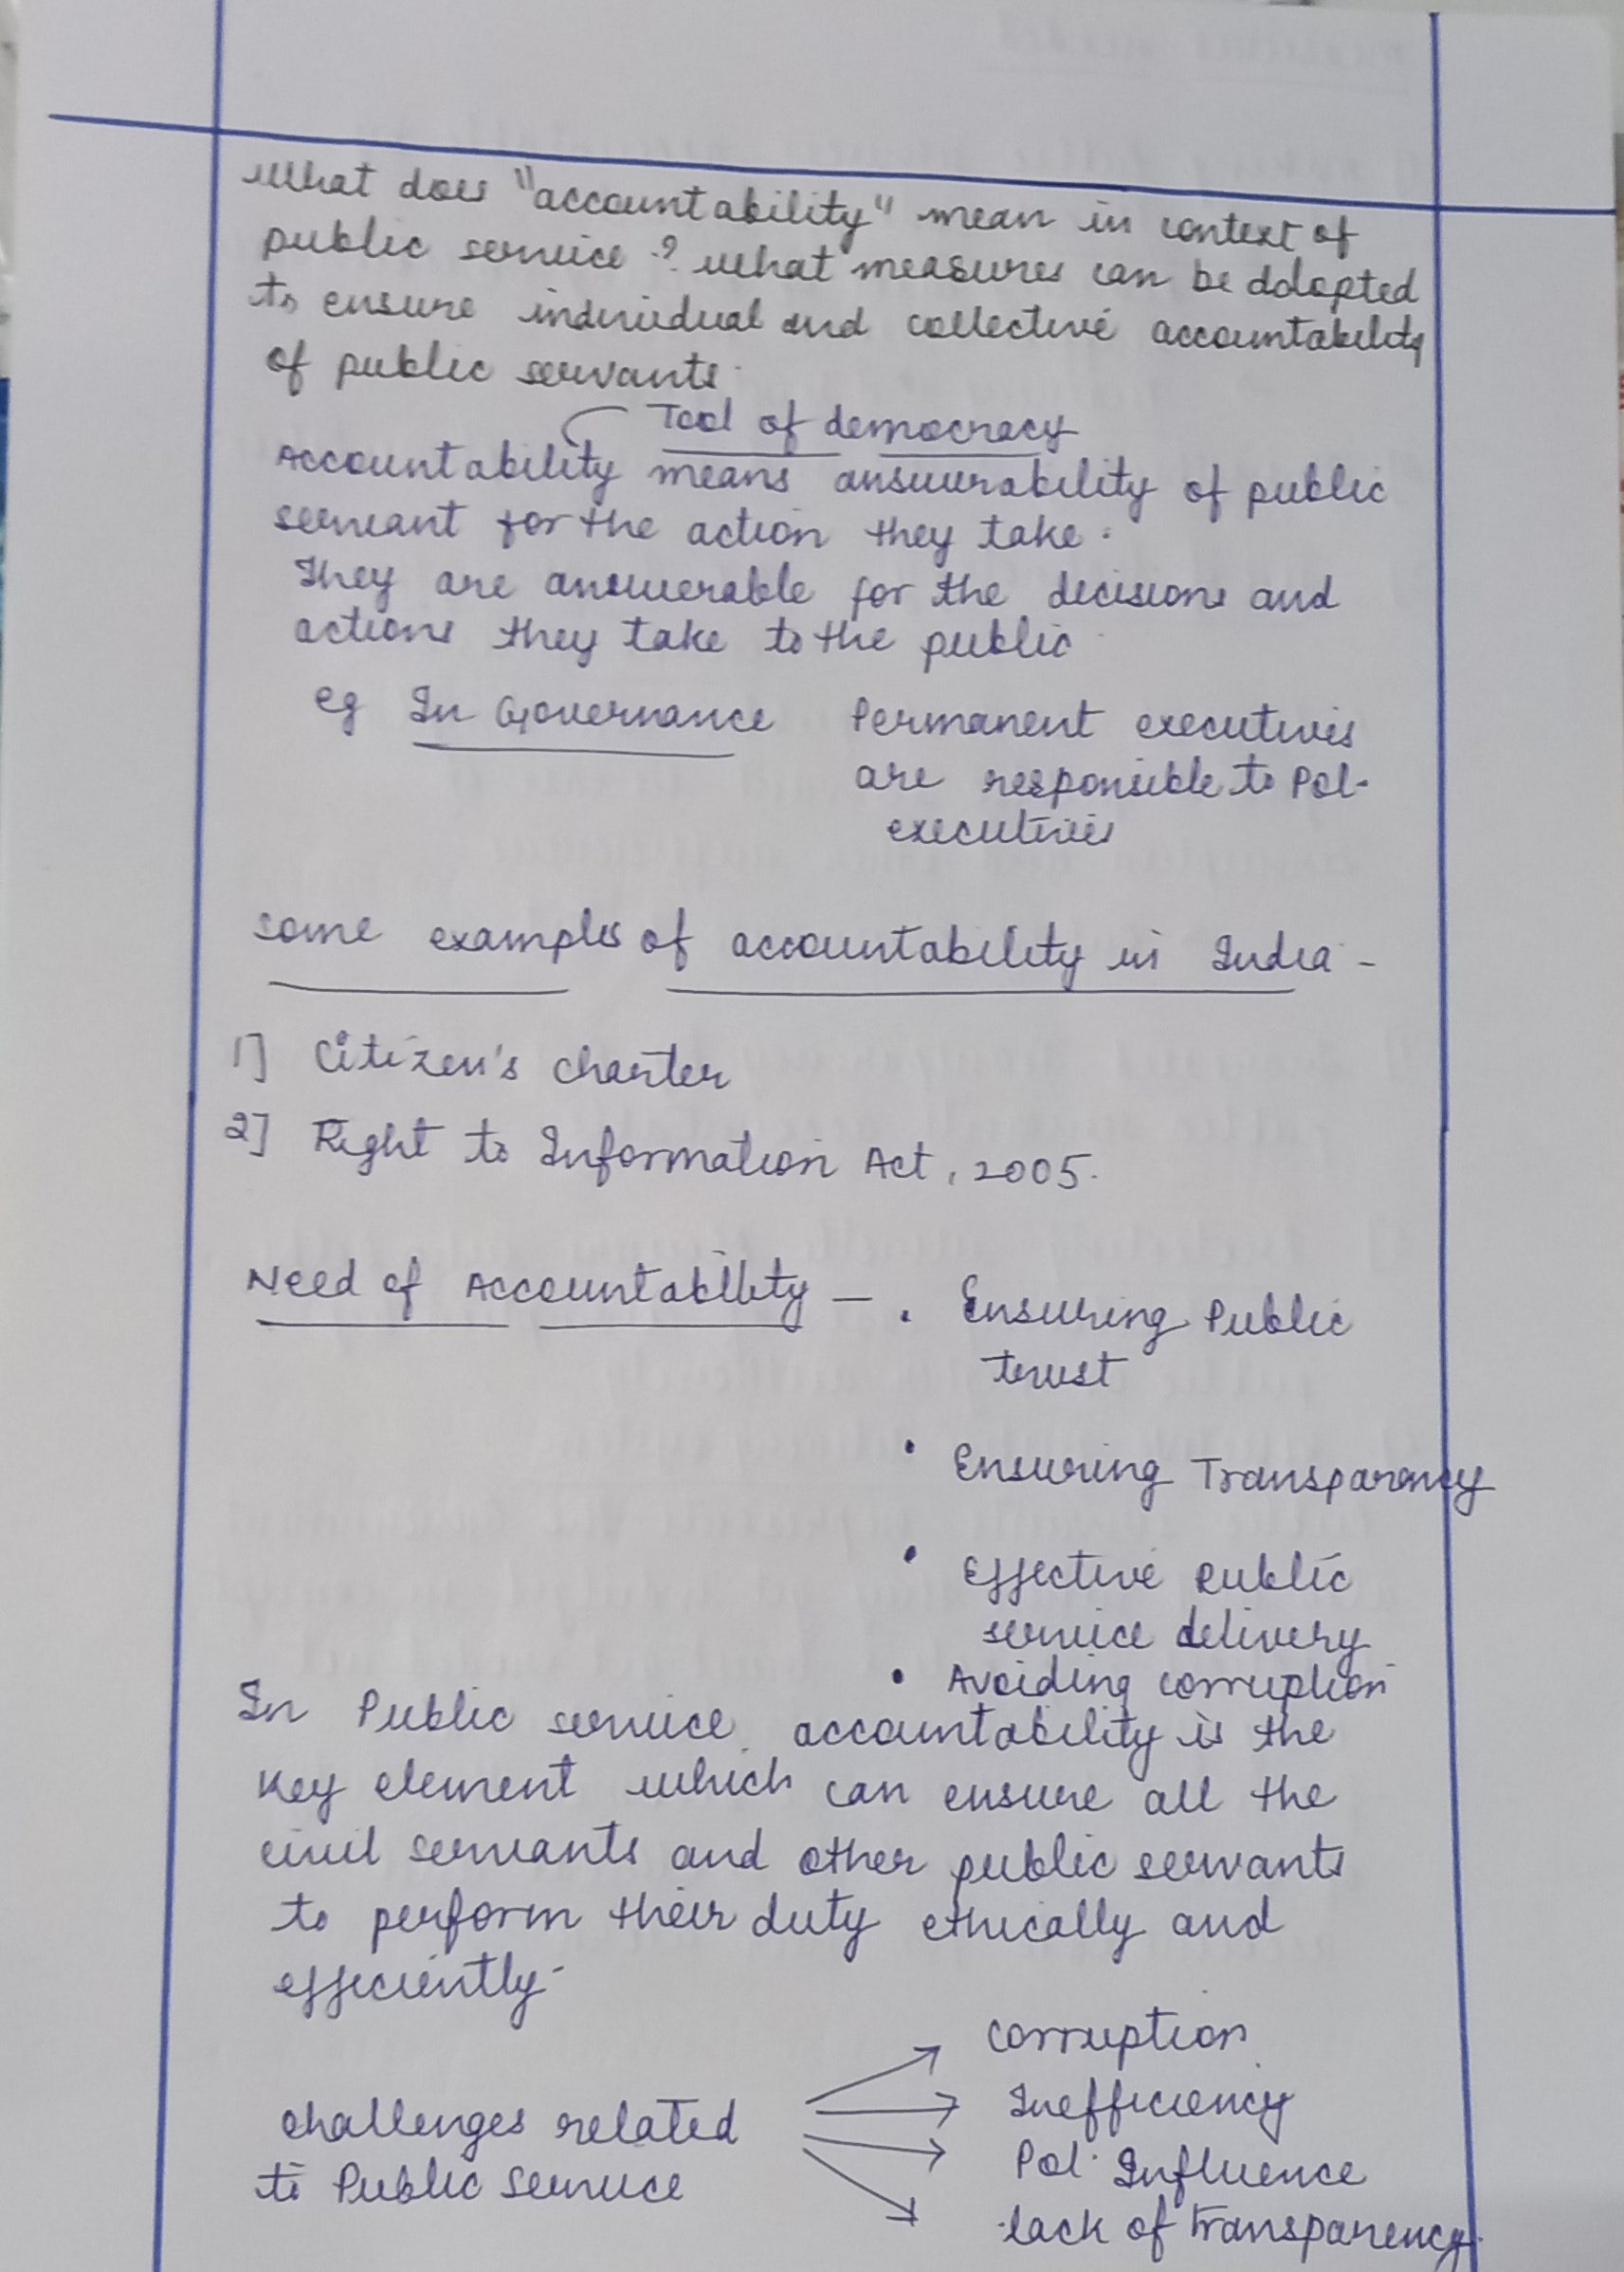 What does "accountability" mean in context of
public service ? what measures can be ddopted
to ensure individual and collective accountability
of public servants.
Tool of democracy
Accountability means answerability of public
servant for the action they take.
They are answerable for the decisions and
actions they take to the public.
eg In Governance Permanent executives
are responsible to Pol.
executives
some examples of accountability in India -
1] Citizen's charter
2] Right to Information Act, 2005.
Need of Accountability - . Ensuring Public
trust
. Ensuring Transparency
. Effective Public
service delivery
. Avoiding corruption
In Public service, accountability is the
key element which can ensure all the
civil servants and other public servants
to perform their duty ethically and
efficiently.
corruption
Inefficiency
challenges related
Pol. Influence
to Public Service
lack of transparency.